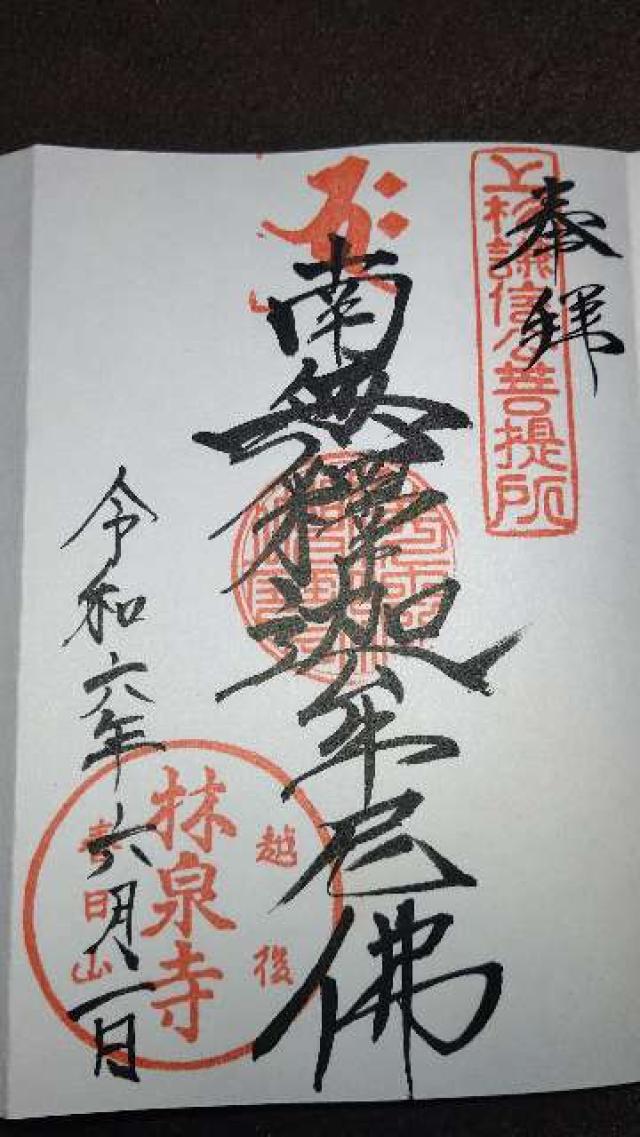 奉拜
上杉謙信公菩提所
南無釋迦牟尼佛
令和六年六月一日
越後
林泉寺
春日山